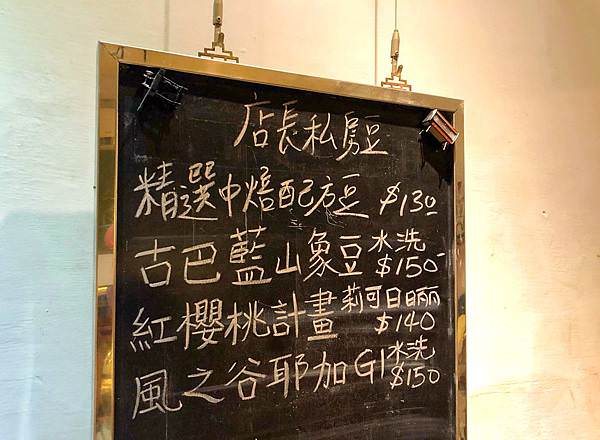 店長私房豆
精選中焙配方豆 $130
古巴藍山象豆 水洗 $150
紅櫻桃計畫 莉可日曬 $140
風之谷耶加G1 水洗 $150